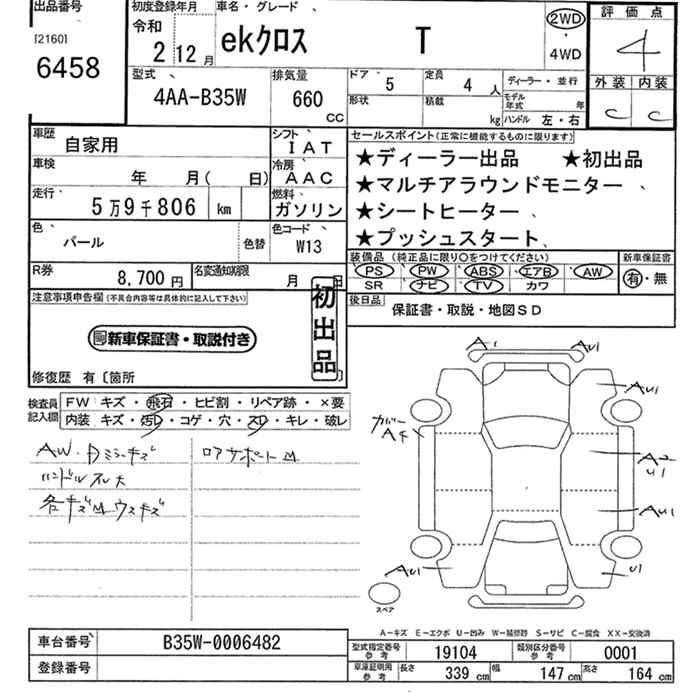 出品番号
[2160]
6458
初度登録年月
令和
2 12月
車名・グレード
ekクロス T
2WD
・
4WD
評価点
4
外装 内装
C C
型式
4AA-B35W
排気量
660
CC
ドア 5
定員 4 人
形状
積載 kg
ディーラー・並行
モデル年式 年
ハンドル 左・右
車歴
自家用
シフト
IAT
車検
年 月( 日)
冷房
AAC
走行
5万9千806 km
燃料
ガソリン
色
パール
色替
色コード
W13
R券
8,700円
名変通知期限
月 日
セールスポイント(正常に機能するものに限ります)
★ディーラー出品 ★初出品
★マルチアラウンドモニター
★シートヒーター
★プッシュスタート
装備品(純正品に限り○をつけてください)
PS PW ABS エアB AW
SR ナビ TV カワ
新車保証書
有・無
後日品
保証書・取説・地図SD
注意事項申告欄(不具合内容等は具体的に記入して下さい)
新車保証書・取説付き
初出品
修復歴 有〔箇所 〕
検査員記入欄
FW キズ・飛石・ヒビ割・リペア跡・×要
内装 キズ・汚れ・コゲ・穴・スレ・キレ・破レ
AW・Dミラーキズ
ロアサポート凹
ハンドルスレ大
各キズ凹ウスキズ
A1
AU1
AU1
カバー
A2
U1
AU1
AU1
U1
スペア
A-キズ E-エクボ U-凹み W-補修跡 S-サビ C-腐食 XX-交換済
車台番号
B35W-0006482
登録番号
型式指定番号
参考
19104
類別区分番号
参考
0001
車庫証明用
参考
長さ 339 cm
幅 147 cm
高さ 164 cm